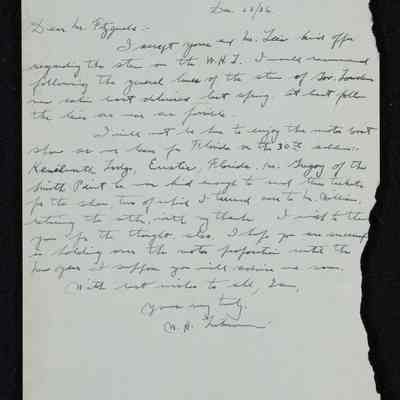 Dec 28/36
Dear Mr. Fitzgerald:-
I accept yours and Mr. kind offer
regarding the stem on the W.H.J. I would recommend
following the general lines of the stem of
boat delivered last spring. At least follow
the lines as near as possible.
I will not be here to enjoy the motor boat
show as we leave for Florida on the 30th address:-
Kenilworth Lodge, Eustis, Florida. Mr. Gregory of the
was kind enough to send two tickets
for the show, two of which I turned over to Mr.
returning the others with my thanks. I wish to thank
you for the thought also. I hope you are successful
in holding over the motor proposition until the
New Year. I suppose you will advise me soon.
With best wishes to all, I am,
Yours very truly,
W. H.